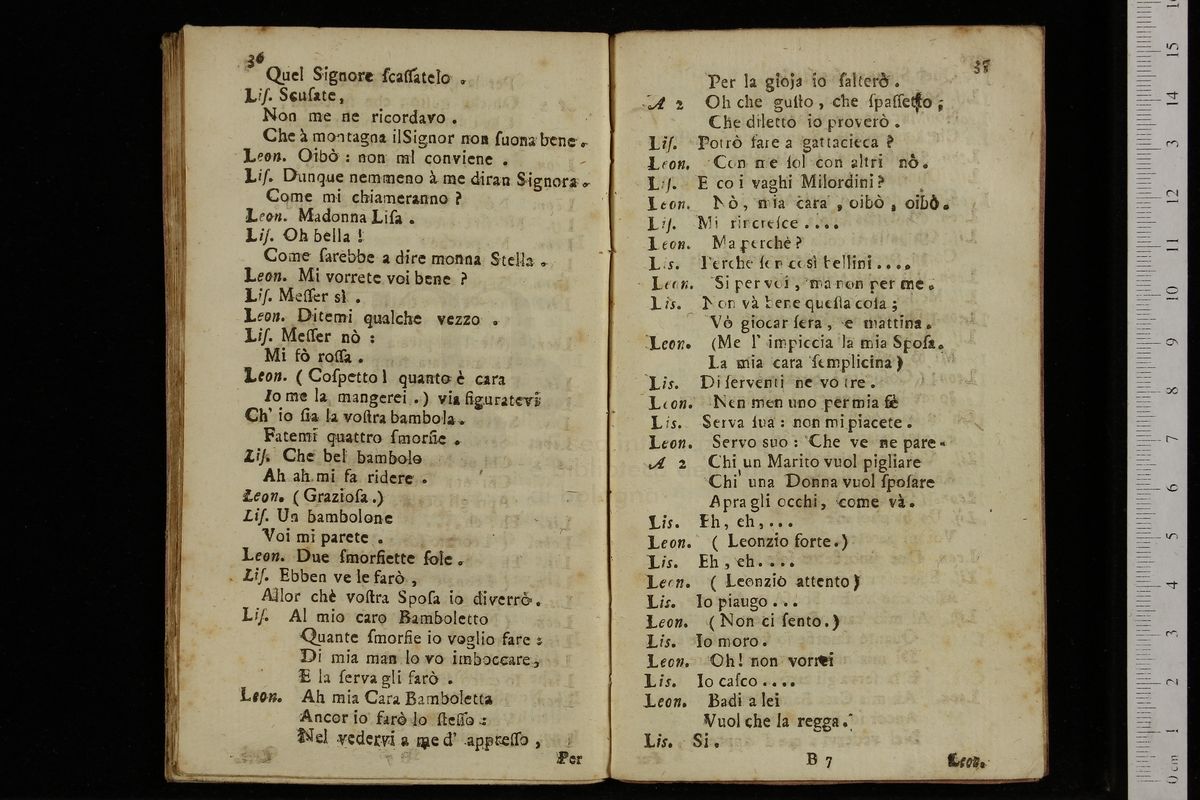 36
Quel Signore ſcaſſatelo .
Liſ. Scuſate,
Non me ne ricordavo .
Che à montagna ilSignor non ſuona bene.
Leon. Oibò : non mi conviene .
Liſ. Dunque nemmeno à me diran Signora.
Come mi chiameranno ?
Leon. Madonna Liſa .
Liſ. Oh bella !
Come ſarebbe a dire monna Stella .
Leon. Mi vorrete voi bene ?
Liſ. Meſſer sì .
Leon. Ditemi qualche vezzo .
Liſ. Meſſer nò :
Mi fò roſſa .
Leon. ( Coſpetto! quanto è cara
Io me la mangerei .) via figuratevi
Ch' io ſia la voſtra bambola.
Fatemi quattro ſmorfie .
Liſ. Che bel bambolo
Ah ah mi fa ridere .
Leon. ( Grazioſa .)
Liſ. Un bambolone
Voi mi parete .
Leon. Due ſmorfiette ſole .
Liſ. Ebben ve le farò ,
Allor chè voſtra Spoſa io diverrò .
Liſ. Al mio caro Bamboletto
Quante ſmorfie io voglio fare :
Di mia man lo vo imboccare,
E la ſerva gli farò .
Leon. Ah mia Cara Bamboletta
Ancor io farò lo ſteſſo :
Nel vedervi a me d' appreſſo ,
Per
Per la gioja io ſalterò .
A 2 Oh che guſto , che ſpaſſetto ;
Che diletto io proverò .
Liſ. Potrò fare a gattacieca ?
Leon. Con me ſol con altri nò.
Liſ. E co i vaghi Milordini ?
Leon. Nò , mia cara , oibò , oibò.
Liſ. Mi rincreſce ....
Leon. Ma perchè ?
Lis. Perche ſon così bellini ....
Leon. Si per voi , ma non per me .
Lis. Non và bene queſta coſa ;
Vò giocar ſera , e mattina .
Leon. (Me l' impiccia la mia Spoſa.
La mia cara ſemplicina )
Lis. Di ſerventi ne vo tre .
Leon. Nen men uno per mia fè
Lis. Serva ſua : non mi piacete .
Leon. Servo suo : Che ve ne pare.
A 2 Chi un Marito vuol pigliare
Chi una Donna vuol ſpoſare
Apra gli occhi, come và .
Lis. Eh, eh, ...
Leon. ( Leonzio forte.)
Lis. Eh , eh ....
Leon. ( Leonziò attento )
Lis. Io piaugo ...
Leon. ( Non ci ſento. )
Lis. Io moro .
Leon. Oh! non vorrei
Lis. Io caſco ....
Leon. Badi a lei
Vuol che la regga .
Lis. Si .
B 7
Leon.
0 cm 1 2 3 4 5 6 7 8 9 10 11 12 13 14 15